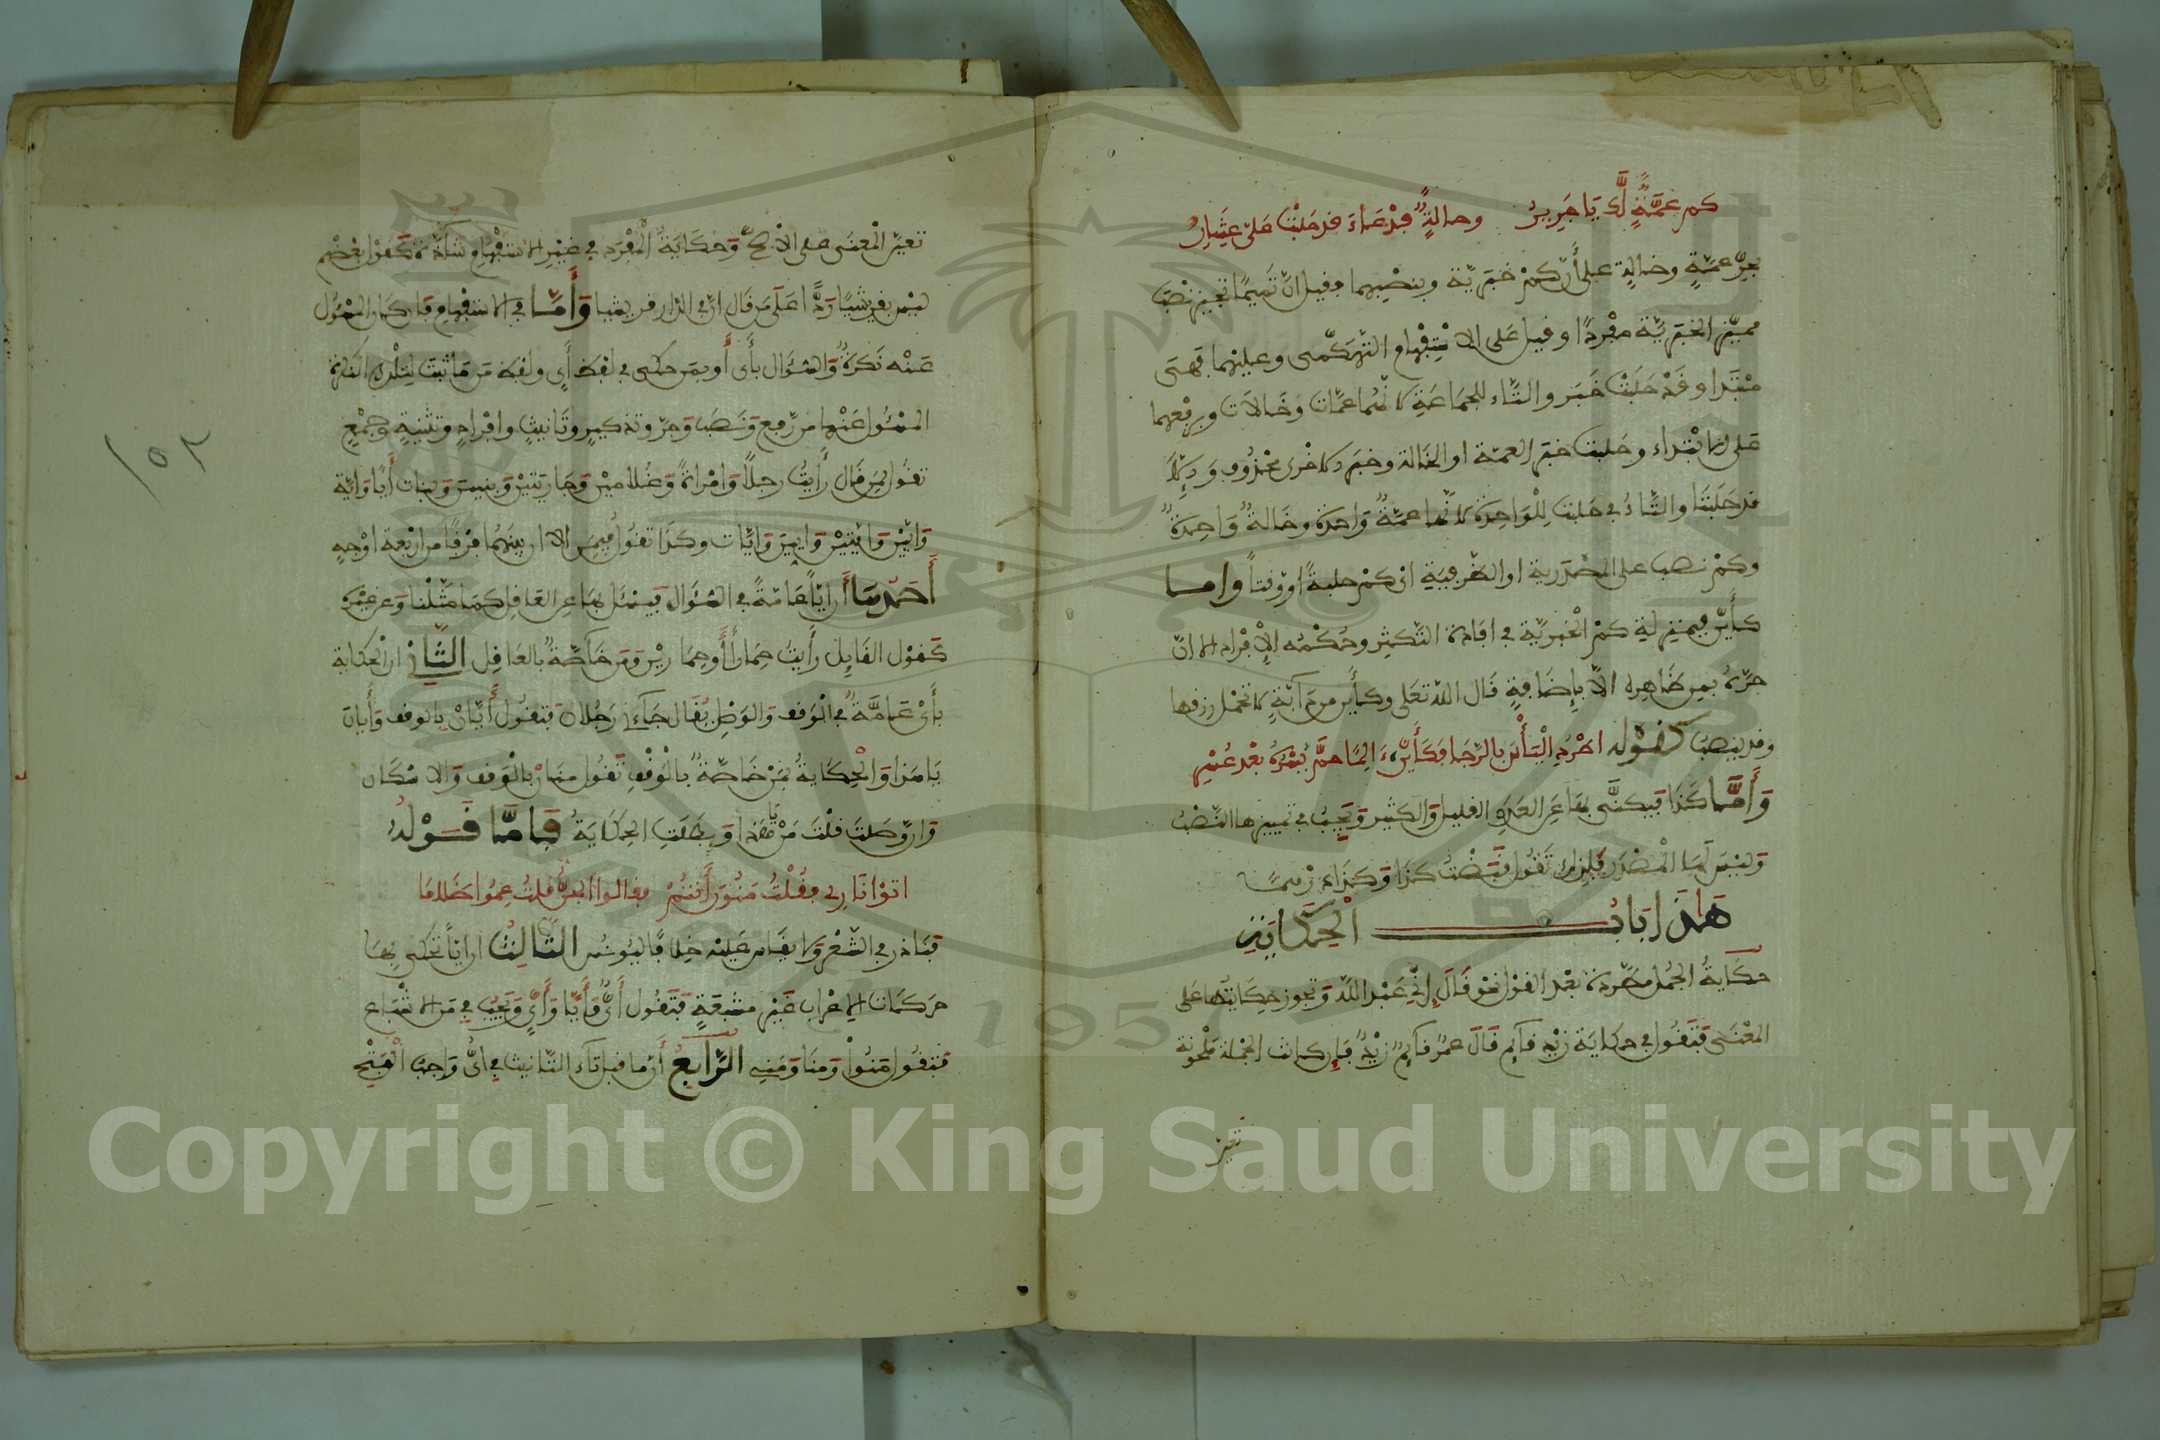 كم عمَّةٌ لَّك يَا جَرِيرُ وخالةٌ فَدْعَاءَ قد حلبْت عليّ عِشَارِ
بجرّ عمّةٍ وخالةٍ على أنّ كمْ خبريّة وبنصْبِهما وقيل انّ تَميمًا تجيز نصْبَ
مميّز الخبريّة مفردًا وقيل على الاسْتِفهام التهكّمى وعليهما فهى
مبتدا وقدْ حَلَبَتْ خَبَر والتَّاء للجمَاعَةِ لانّهُما عمّات وخَالات وبرفْعهما
على الابْتداء وحَلبت خبر للعمّة او الخالة وخبر الاخرى محذوف وَالّا
قد حَلَبَتَا والتَّاءُ في حَلبت لِلْوَاحِدَة لانّها عمّةٌ وَاحدة وخَالةٌ وَاحِدَةٌ
وكمْ نصب على المصْدَرية او الظرفِيَة اي كمْ حلبةً اوْ وَقتاً وامّا
كأيّن فبمنزلةِ كمْ الخبريّة في افادة التّكثِير وحُكْمُه الإفْراد الا انّ
جرّهُ بمِن ظَاهِرة الا بإضَافةٍ قَال اللّه تَعَلى وكأيّن من دَآبّةٍ لا تحْمل رزقها
وقد ينصِبُ كقَوْله اطْرُدِ الْيَأْسَ بالرّجَا فكَأَيّنْ ءَالِمًا حمَّ يُسْرُهُ بعْد عُسْرِ
وَأَمَّا كَذَا فيكنَّى بهَا عَن العَدَدِ القليل والكثير وَيجِبُ في تمييزها النّصْبُ
وَليْسَ لَهَا الْصّدر فلذلك تَقُول قَبَضْتُ كذَا وَكذَا دِرْهمًا
هَذَا بَابُ الْحِكَايَةِ
حكَايَةُ الجُمل مطّردة بعْد القوْل نحو قَالَ إنّي عَبْد اللّه وَتجوز حِكايَتُها عَلى
المعْنَى فَتَقُول في حكاية زيْد قآئم قَالَ عمرٌ قآئمٌ زيْدٌ فَإن كانت الجملة ملْحونة
تعين
تعيّن الْمعْنَى على الأصحّ وَحكَايَةُ الْمُفْرَد في غيْرِ الاستفْهام شَاذّة كَقوْل بعْضهم
ليْس بقرَشيًا رَدًّا عَلَى مَن قَال انّ في الدّار قرَيشيا وَأَمَّا في الاستفْهام فان كان المسْؤل
عَنْه نَكرةً وَالسّؤَال بأَى أَو بمَن حكى في لفظ أَىٍ ولفظ مَن مَا ثبَتَ لِتلْك النّكرة
المسْؤل عَنْها من رّفع وَنَصْب وَجرّ وتذكيرٍ وتَانيثٍ وافْرادٍ وتثنيةٍ وجَمْعٍ
تقُول لمَن قَال رَأيتُ رجلًا وَامْرأةً وَغُلامَيْن وَجَاريَتيْن وَبنِينَ وَبنات أيًا وَايّة
وَايّيْن وَايّتيْن وَايّينَ وَايّات وكذَا تقُول في مَن الا ان بيْنَهُما فرْقًا من ارْبَعة اوْجهٍ
أَحَدُهَا أن ايّاً عَامّةً في السّؤَال فيسْئل بها عن العَاقِل كمَا مثّلْنا وَعن غيْره
كقوْل القَايل رأيتُ حِمَارًا أَوْ حِمارَيْن وَمَن خَآصّةٌ بالعَاقِل الثَّاني ان الحكاية
بأَىْ عَامّةٌ في الوَقْف وَالوَصْل يُقَال جَاءَ رَجُلان فَتقُول أَيَّانْ بالوقف وَأَيّانِ
يَا هَذا وَالْحِكايةُ بمَنْ خَاصّةٌ بالْوَقْفِ تَقُول منَانْ بالْوَقف وَالاسْكَان
وَان وّصَلت قُلْتَ مَنْ يا هذا وَبطلَتِ الحِكَايَةُ فَأمَّا قَوْلُه
اتوْا نَارِى فقُلْتُ مَنُونَ أَنتُمْ فقالوا الجنُّ قلتُ عِمُوا ظَلامَا
فنَادر في الشّعْر وَلا يقَاس عَليْه خِلافًا ليُونُس الثَّالِثُ ان ايّاً تُحْكى بهَا
حرَكات الاعْراب غَيْر مشْبَعَةٍ فَتقُول أَىٌّ وَأَيًّا وَأَىٍّ وَيَجِبُ في مَن الاشْبَاع
فتقُول مَنُوا وَمَنَا وَمَنِى الرَّابِعُ أَنّ ما قبل تَآء التّانيث في أىٍّ وَاجبُ الْفَتْحِ
١٥٢
Copyright © King Saud University
1957